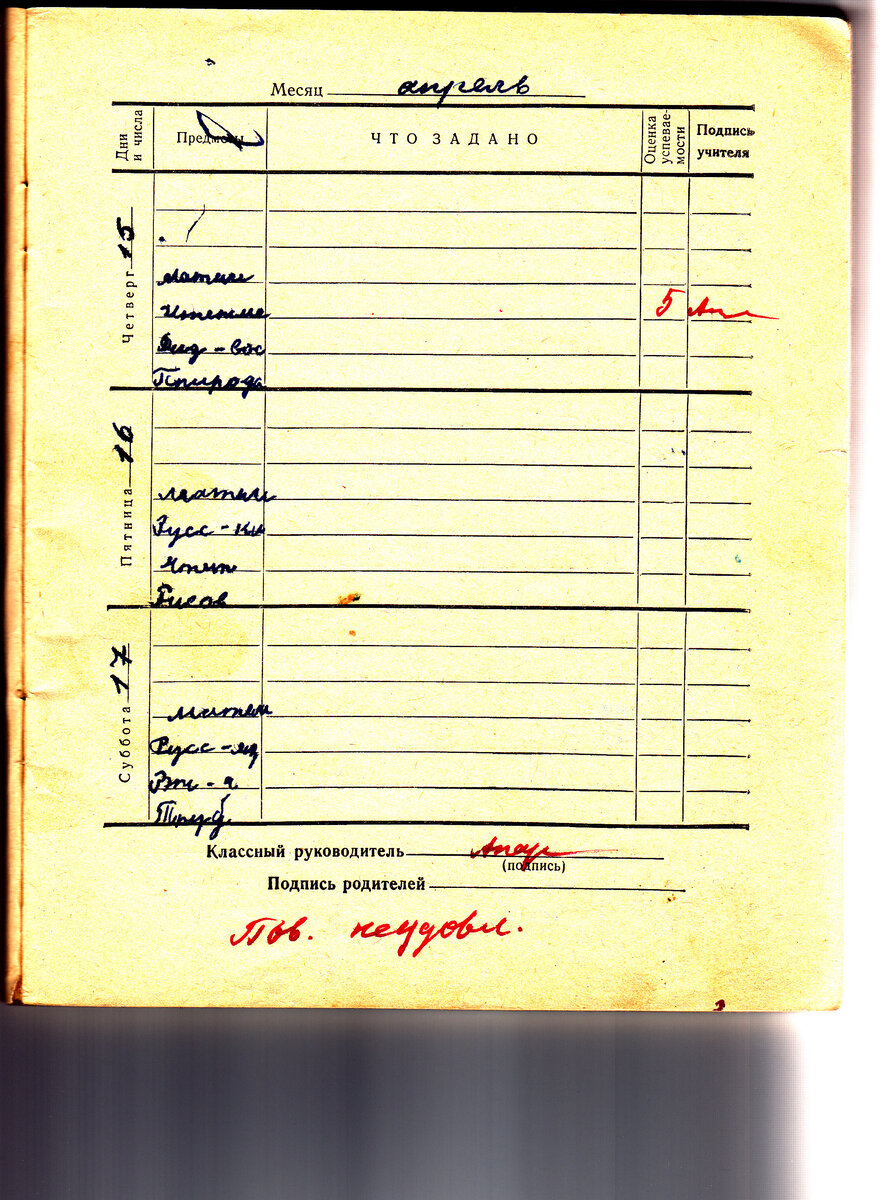 Месяц апрель
Дни и числа Предметы ЧТО ЗАДАНО Оценка успевае-мости Подпись учителя
Четверг 15
Матем
Чтение 5
Физ-вос
Природа
Пятница 16
Матем
Русс-
Чтен
Рисов
Суббота 17
Матем
Русс-яз
Труд
Классный руководитель
(подпись)
Подпись родителей
Пов. неудовл.